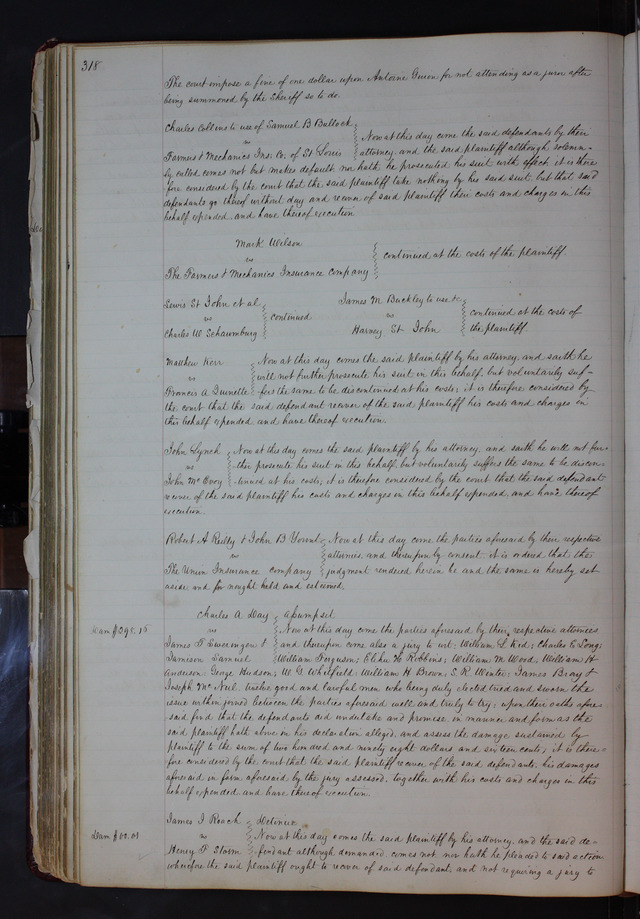 318
The court impose a fine of one dollar upon Antoine Gueon for not attending as a juror after
being summoned by the Sheriff so to do.
Charles Collins to use of Samuel B Bullock
vs
Farmers & Mechanics Ins: Co: of St Louis
Now at this day come the said defendants by their
attorney, and the said plaintiff although solemn-
ly called comes not but makes default, nor hath he prosecuted his suit with effect, it is there
fore considered by the court that the said plaintiff take nothing by his said suit but that said
defendants go thereof without day and recover of said plaintiff their costs and charges in this
behalf expended, and have thereof execution
Mark Wilson
vs
The Farmers & Mechanics Insurance company
continued at the costs of the plaintiff.
Lewis St John et al
vs
Charles W. Schaumburg
continued
James M Buckley to use &c
vs
Harney St John
continued at the costs of
the plaintiff
Matthew Kerr
vs
Francis A
Now at this day comes the said plaintiff by his attorney, and saith he
will not further prosecute his suit in this behalf, but voluntarily suf-
fers the same to be discontinued at his costs; it is therefore considered by
the court that the said defendant recover of the said plaintiff his costs and charges in
this behalf expended, and have thereof execution.
John Lynch
vs
John McEvoy
Now at this day comes the said plaintiff by his attorney, and saith he will not fur-
ther prosecute his suit in this behalf but voluntarily suffers the same to be discon-
tinued at his costs; it is therefore considered by the court that the said defendant
recover of the said plaintiff his costs and charges in this behalf expended, and have thereof
execution
Robert A Reilly & John B
vs
The Union Insurance company
Now at this day come the parties aforesaid by their respective
attornies, and thereupon by consent it is ordered that the
judgment rendered herein be and the same is hereby set
aside and for nought held and esteemed,
Dam $298.16
Charles A Day
vs
James F &
Jameson Samuel
Assumpsit
Now at this day come the parties aforesaid by their respective attornies
and thereupon come also a jury to wit: William L Kid; Charles E Long;
William Ferguson; Elihu H Robbins; William M Wood; William H
Anderson George Hudson; W. G Whitfield; William H Brown; S. R. Wents; James Bray &
Joseph Mc Neil twelve good and lawful men who being duly elected tried and sworn the
issue within joined between the parties aforesaid well and truly to try; upon their oaths afore
said find that the defendants did undertake and promise, in manner and form as the
said plaintiff hath above in his declaration alleged, and assess the damage sustained by
plaintiff to the sum of two hundred and ninety eight dollars and sixteen cents; it is there-
fore considered by the court that the said plaintiff recover of the said defendants, his damages
aforesaid in form aforesaid by the jury assessed, together with his costs and charges in this
behalf expended and have thereof execution
James J Roach
vs
Henry F Storm
Detinue
Dam $60.01
Now at this day comes the said plaintiff by his attorney, and the said de-
fendant although demanded, comes not, nor hath he pleaded to said action
wherefore the said plaintiff ought to recover of said defendant, and not requiring a jury to